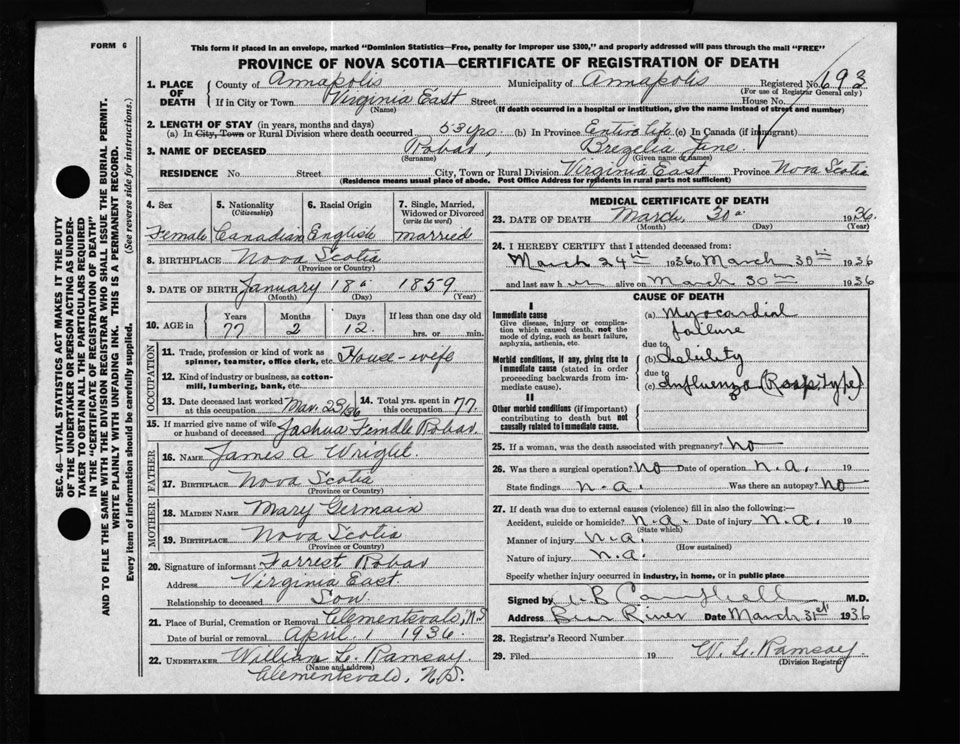 FORM 6
This form if placed in an envelope, marked "Dominion Statistics—Free, penalty for improper use $300," and properly addressed will pass through the mail "FREE"
PROVINCE OF NOVA SCOTIA—CERTIFICATE OF REGISTRATION OF DEATH
1. PLACE OF DEATH County of Annapolis Municipality of Annapolis Registered No. 693
(For use of Registrar General only)
If in City or Town Virginia East Street House No.
(If death occurred in a hospital or institution, give the name instead of street and number)
2. LENGTH OF STAY (in years, months and days)
(a) In City, Town or Rural Division where death occurred 53 yrs. (b) In Province Entire life (c) In Canada (if immigrant)
3. NAME OF DECEASED Robar, Brezelia Jane
(Surname) (Given name or names)
RESIDENCE No. Street City, Town or Rural Division Virginia East Province Nova Scotia
(Residence means usual place of abode. Post Office Address for residents in rural parts not sufficient)
4. Sex 5. Nationality (Citizenship) 6. Racial Origin 7. Single, Married, Widowed or Divorced (write the word)
Female Canadian English Married
8. BIRTHPLACE Nova Scotia
(Province or Country)
9. DATE OF BIRTH January 18 1859
(Month) (Day) (Year)
10. AGE in Years Months Days If less than one day old
77 2 12 hrs. or min.
OCCUPATION
11. Trade, profession or kind of work as spinner, teamster, office clerk, etc. House-wife
12. Kind of industry or business, as cotton-mill, lumbering, bank, etc.
13. Date deceased last worked at this occupation Mar. 23/36 14. Total yrs. spent in this occupation 77.
15. If married give name of wife or husband of deceased Joshua Robar
FATHER
16. NAME James A Wright
17. BIRTHPLACE Nova Scotia
(Province or Country)
MOTHER
18. MAIDEN NAME Mary Germain
19. BIRTHPLACE Nova Scotia
(Province or Country)
20. Signature of informant Forrest Robar
Address Virginia East.
Relationship to deceased Son
21. Place of Burial, Cremation or Removal Clementsvale, N.S.
Date of burial or removal April 1 1936.
22. UNDERTAKER William L. Ramsay.
(Name and address)
Clementsvale, N.S.
MEDICAL CERTIFICATE OF DEATH
23. DATE OF DEATH March, 30 1936
(Month) (Day) (Year)
24. I HEREBY CERTIFY that I attended deceased from:
March 24th 1936 to March 30th 1936
and last saw her alive on March 30th 1936
CAUSE OF DEATH
I
Immediate cause
Give disease, injury or complication which caused death, not the mode of dying, such as heart failure, asphyxia, asthenia, etc.
(a) Myocardial failure
due to
Morbid conditions, if any, giving rise to immediate cause (stated in order proceeding backwards from immediate cause).
(b) debility
due to
(c) Influenza (Resp. type)
II
Other morbid conditions (if important) contributing to death but not causally related to immediate cause.
25. If a woman, was the death associated with pregnancy? No
26. Was there a surgical operation? No Date of operation N.A. 19
State findings N.A. Was there an autopsy? No
27. If death was due to external causes (violence) fill in also the following:
Accident, suicide or homicide? N.A. Date of injury N.A. 19
(State which)
Manner of injury N.A.
(How sustained)
Nature of injury N.A.
Specify whether injury occurred in industry, in home, or in public place
Signed by Campbell M.D.
Address Bear River Date March 31st 1936
28. Registrar's Record Number
29. Filed 19 W. L. Ramsay
(Division Registrar)
SEC. 46—VITAL STATISTICS ACT MAKES IT THE DUTY OF THE UNDERTAKER OR PERSON ACTING AS UNDERTAKER TO OBTAIN ALL THE PARTICULARS REQUIRED IN THE "CERTIFICATE OF REGISTRATION OF DEATH"
AND TO FILE THE SAME WITH THE DIVISION REGISTRAR WHO SHALL ISSUE THE BURIAL PERMIT.
WRITE PLAINLY WITH UNFADING INK. THIS IS A PERMANENT RECORD.
Every item of information should be carefully supplied. (See reverse side for instructions.)